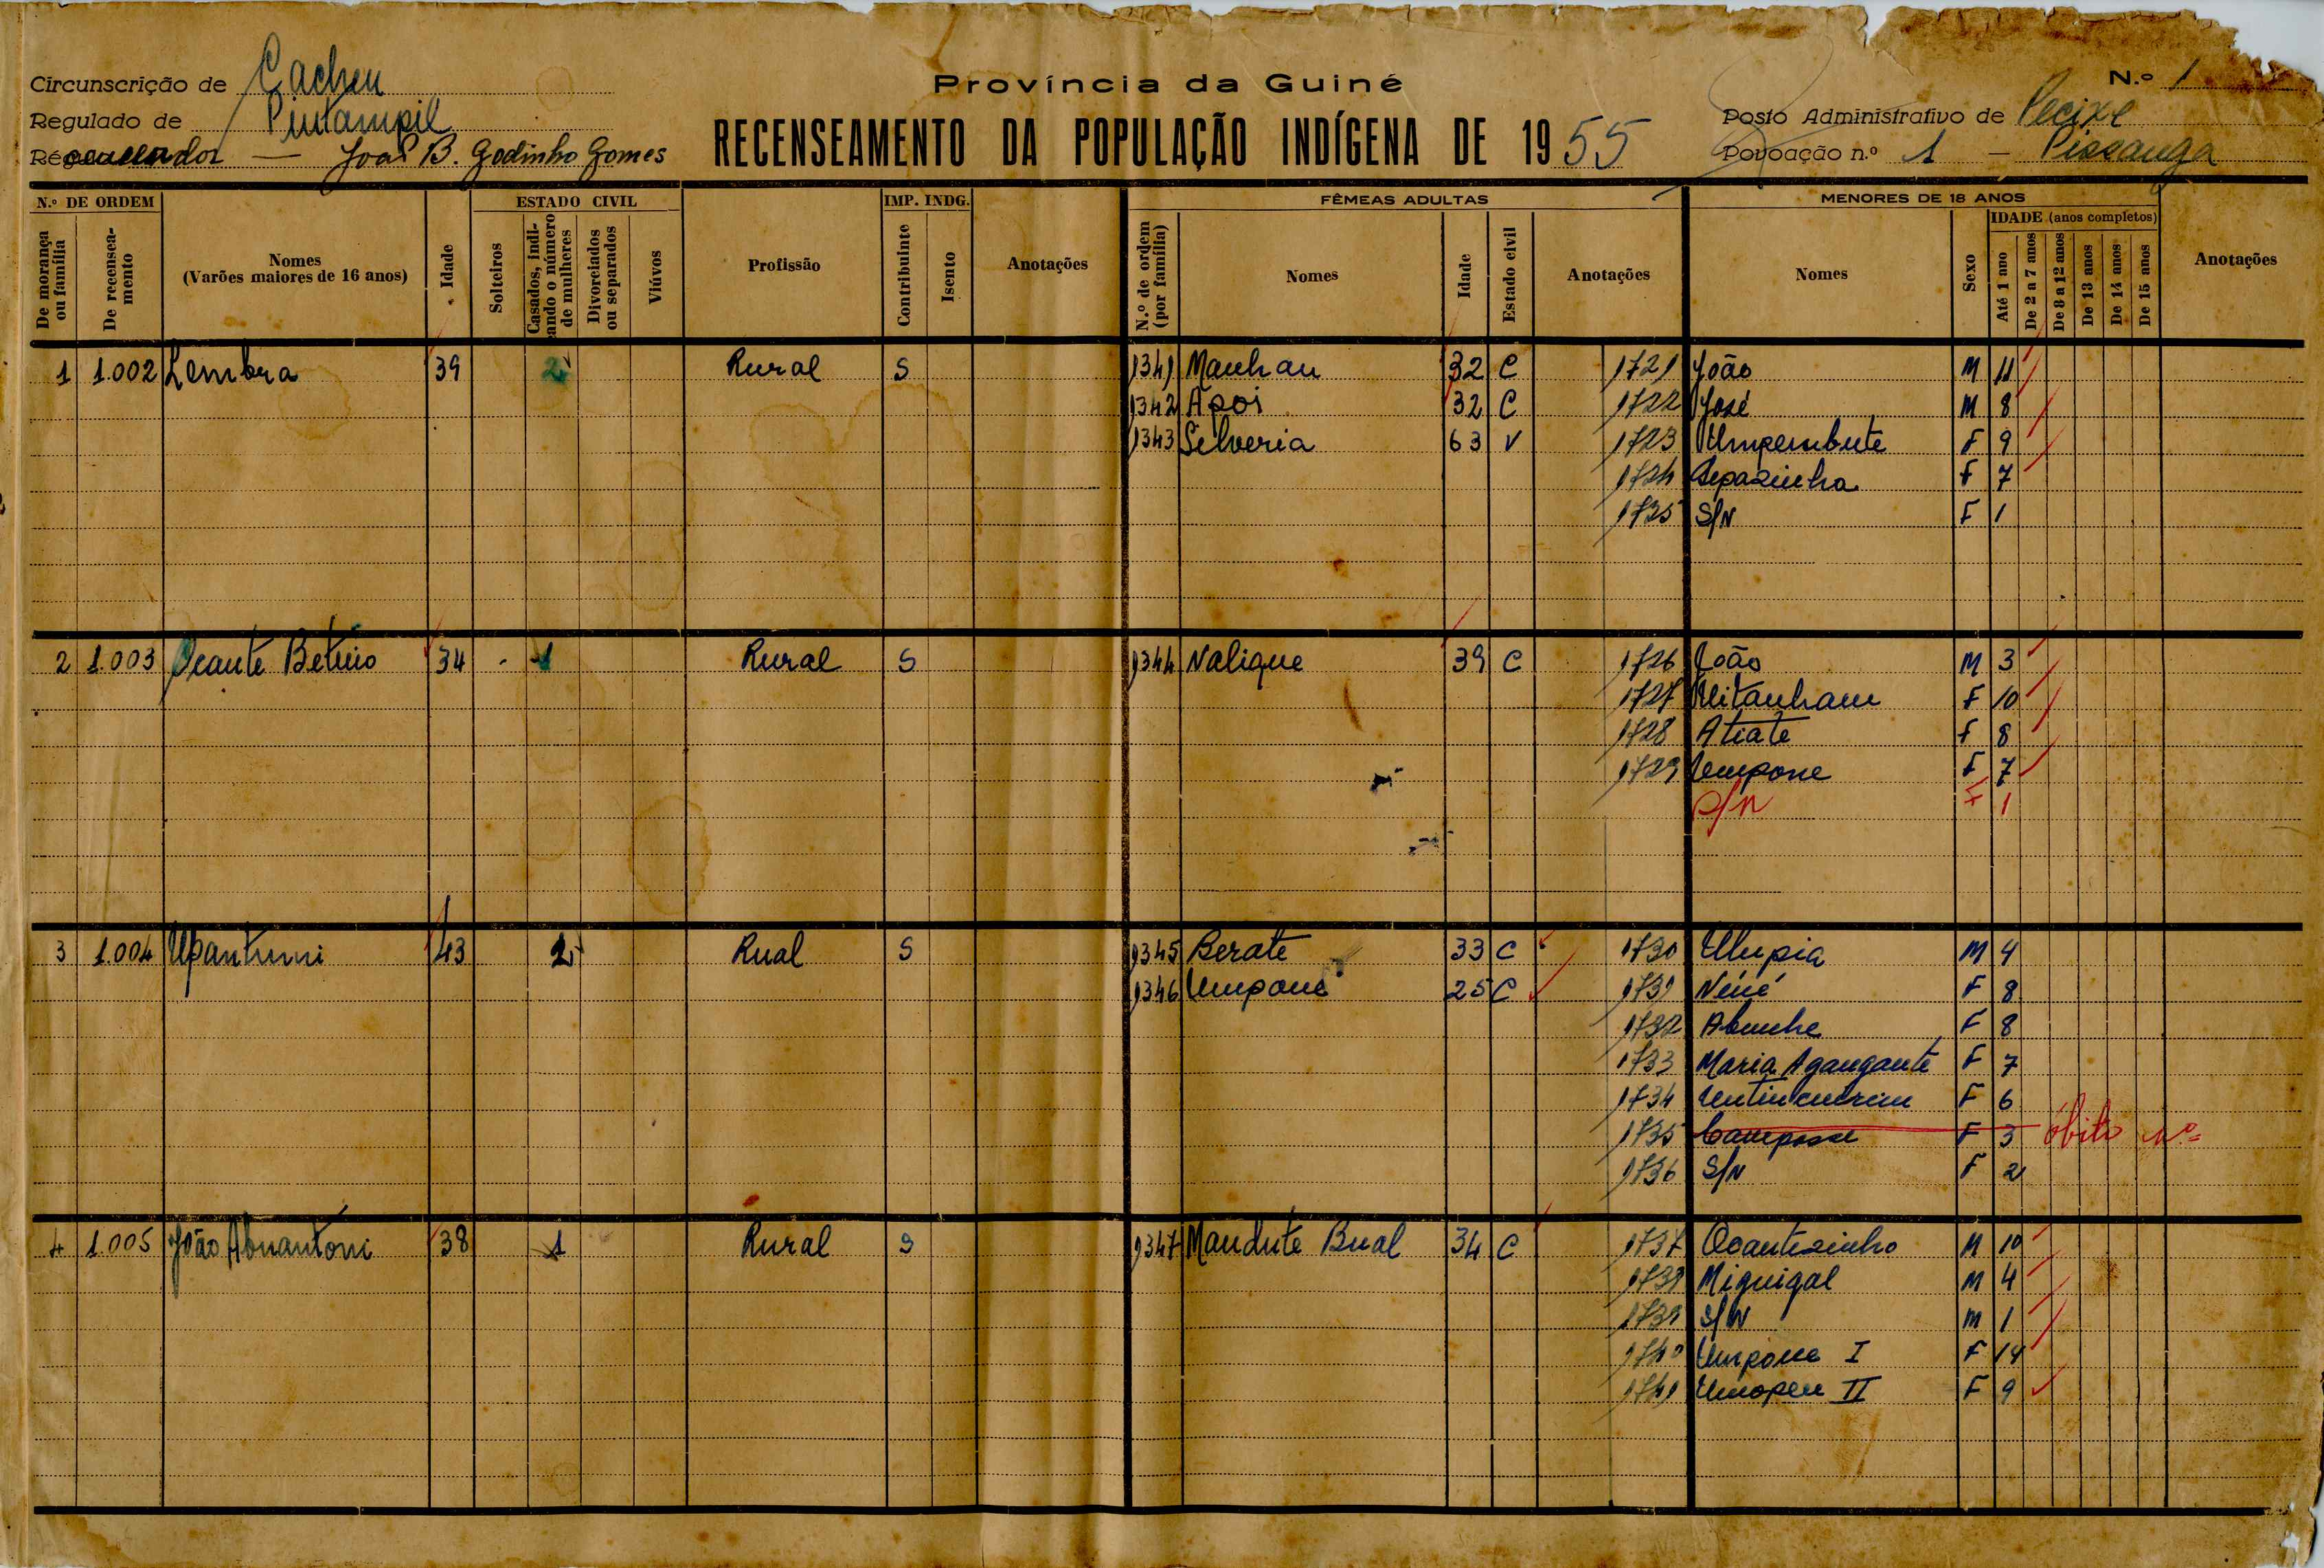 Província da Guiné
N.º 1
Circunscrição de Cacheu
Regulado de Pintampil
João B. Godinho Gomes
RECENSEAMENTO DA POPULAÇÃO INDÍGENA DE 1955
Posto Administrativo de Pecixe
Povoação n.º 1 — Pissanga
N.º DE ORDEM
De morança ou família
De recenseamento
Nomes
(Varões maiores de 16 anos)
Idade
ESTADO CIVIL
Solteiros
Casados, indicando o número de mulheres
Divorciados ou separados
Viúvos
Profissão
IMP. INDG.
Contribuinte
Isento
Anotações
FÊMEAS ADULTAS
N.º de ordem (por família)
Nomes
Idade
Estado civil
Anotações
MENORES DE 18 ANOS
Nomes
Sexo
IDADE (anos completos)
Até 1 ano
De 2 a 7 anos
De 8 a 12 anos
De 13 anos
De 14 anos
De 15 anos
Anotações
1 1.002 Lembra 39 2 Rural S 1341 Manhan 32 C 1721 João M 11
1342 Apoi 32 C 1722 José M 8
1343 Silveria 63 V 1723 Umpembute F 9
1724 F 7
1725 S/N F 1
2 1.003 Ocante Betuio 34 - 1 Rural S 1344 Nalique 39 C 1726 João M 3
1727 F 10
1728 Atiate F 8
1729 Umpone F 7
S/N F 1
3 1.004 43 2 Rual S 1345 Berate 33 C 1730 M 4
1346 Umpone 25 C 1731 Néné F 8
1732 Abunhe F 8
1733 Maria Agangante F 7
1734 F 6
1735 Camposse F 3 óbito nº
1736 S/N F 2
4 1.005 João Abnantoni 38 1 Rural S 1347 Mandute Bual 34 C 1737 Ocantezinho M 10
Miguigal M 4
1739 S/N M 1
1740 Umpone I F 14
1741 Umopen II F 9